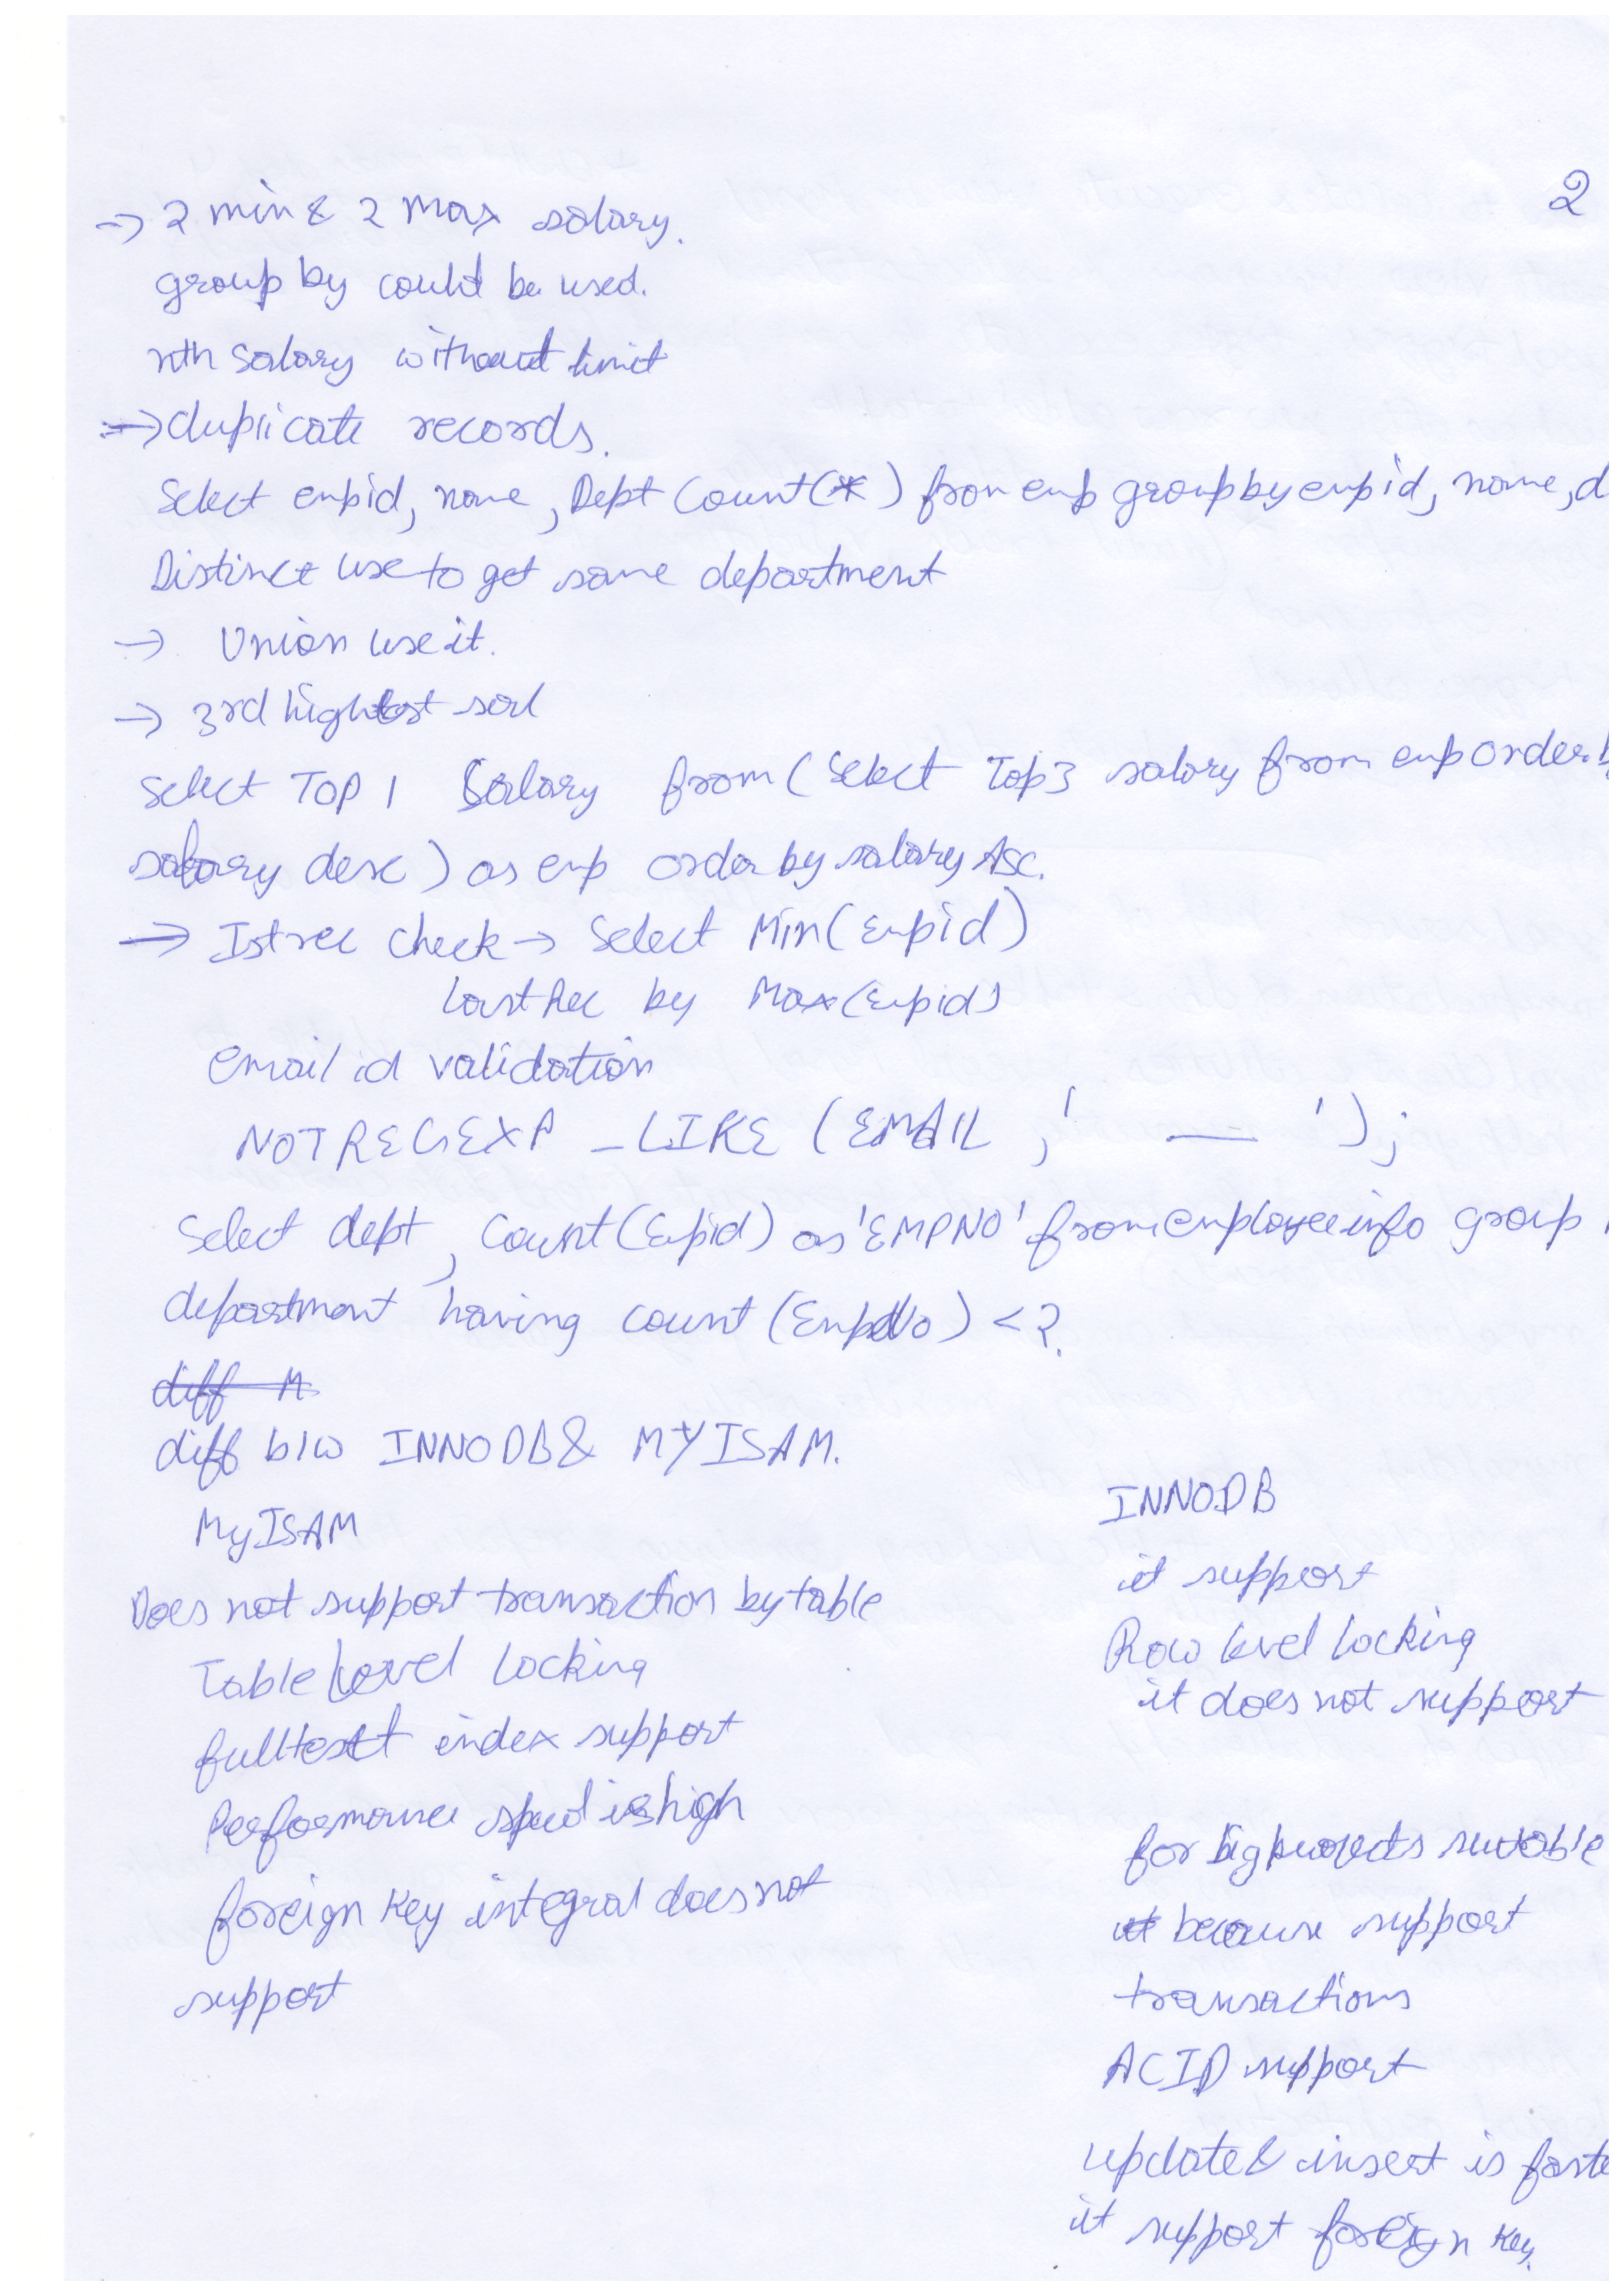 2
→ 2 min & 2 Max salary.
group by could be used.
nth salary without limit
→ duplicate records.
Select empid, name, Dept Count(*) from emp group by empid, name, d
Distinct use to get same department
→ Union use it.
→ 3rd highest sal
Select TOP 1 Salary from (Select Top 3 salary from emp order b
salary desc) as emp order by salary Asc.
→ Ist rec check → Select Min(Empid)
Last Rec by Max(Empid)
email id validation
NOT REGEXP _LIKE (EMAIL, ' — ');
Select dept, Count(Empid) as 'EMPNO' from employeeinfo group
department having count (EmpNo) < 2.
diff M
diff b/w INNODB & MYISAM.
MyISAM
INNODB
Does not support transaction by table
it support
Table level locking
Row level locking
fulltext index support
it does not support
Performance speed is high
for big projects suitable
foreign key integral does not
support
because support
transactions
ACID support
update & insert is faste
it support foreign key.